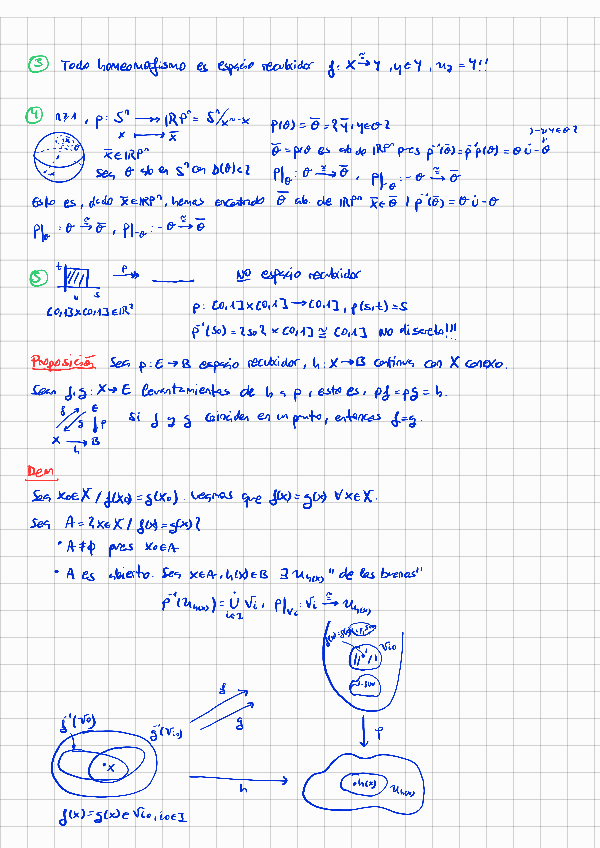 ③ Todo homeomorfismo es espacio recubridor f: X ≅→ Y, y∈Y, u_y = Y!!
④ n≥1, p: Sⁿ →→ ℝPⁿ = Sⁿ/x~-x
x ↦ x̄
p(θ) = θ̄ = {ȳ, y∈θ}
x̄∈ℝPⁿ
{-y, y∈θ}
θ̄ = p(θ) es ab de ℝPⁿ pues p⁻¹(θ̄) = p⁻¹p(θ) = θ ∪̇ -θ
Sea θ ab en Sⁿ con
p|_θ: θ ≅→ θ̄, p|_-θ: -θ ≅→ θ̄
Esto es, dado x̄∈ℝPⁿ, hemos encontrado θ̄ ab. de ℝPⁿ x̄∈θ̄ / p⁻¹(θ̄) = θ ∪̇ -θ
p|_θ: θ ≅→ θ̄, p|_-θ: -θ ≅→ θ̄
⑤ t s p→ NO espacio recubridor
[0,1]×[0,1]∈ℝ²
p: [0,1]×[0,1] → [0,1], p(s,t) = s
p⁻¹(s₀) = {s₀} × [0,1] ≅ [0,1] NO discreto!!!
Proposición Sea p: E → B espacio recubridor, h: X → B continua con X conexo.
Sean f, g: X → E levantamientos de h a p, esto es, pf = pg = h.
f E
g p
X → B
h
Si f y g coinciden en un punto, entonces f = g.
Dem
Sea x₀∈X / f(x₀) = g(x₀). Veamos que f(x) = g(x) ∀x∈X.
Sea A = {x∈X / f(x) = g(x)}
• A ≠ ∅ pues x₀∈A
• A es abierto. Sea x∈A, h(x)∈B ∃ U_h(x) "de las buenas"
p⁻¹(U_h(x)) = ∪̇_{i∈I} V_i, p|_{V_i}: V_i ≅→ U_h(x)
V_i₀
f
g
p
f⁻¹(V_i₀)
g⁻¹(V_i₀)
•x
h
•h(x) U_h(x)
f(x) = g(x) ∈ V_i₀, i₀∈I